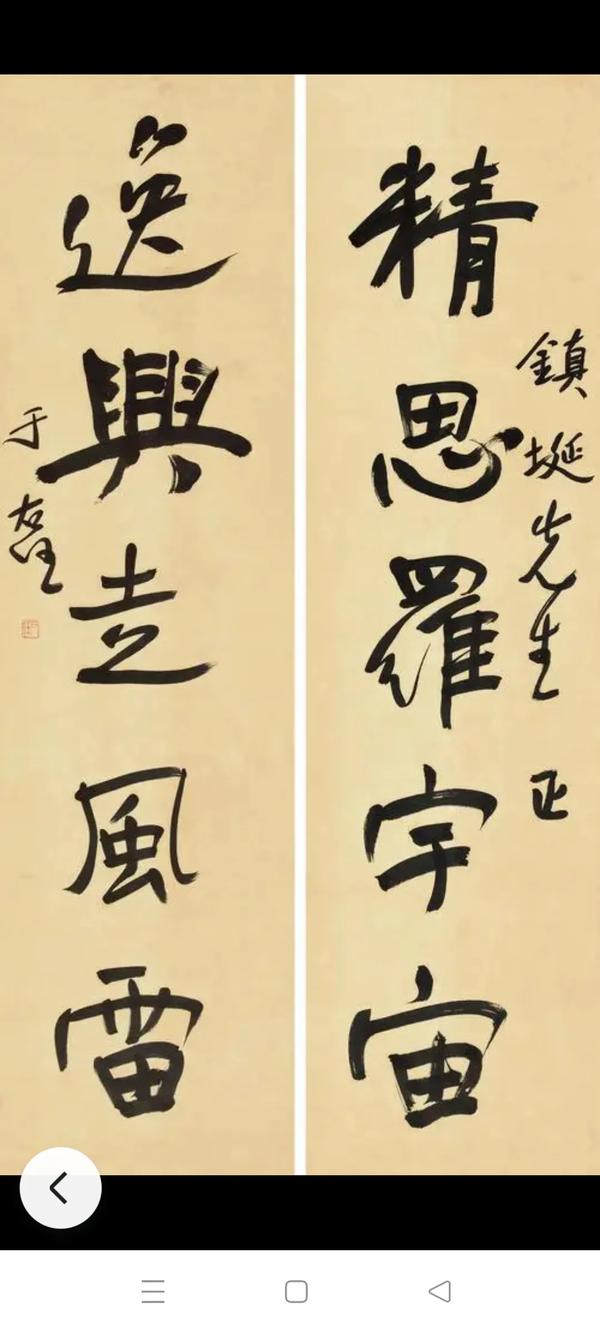 精思羅宇宙
鎮埏先生正
逸興走風雷
于右任